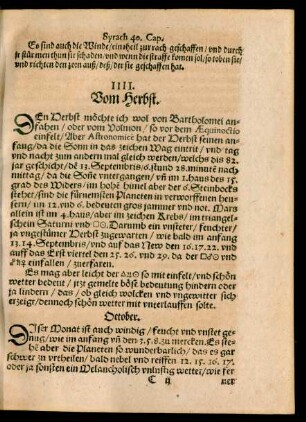 Syrach 40. Cap.
Es sind auch die Winde / ein theil zur rach geschaffen / vnd durch
jr stürmen thun sie schaden / vnd wenn die straffe komen sol / so toben sie /
vnd richten den zorn auß / deß / der sie geschaffen hat.
IIII.
Vom Herbst.
DEn Herbst möchte ich wol von Bartholomei an-
fahen / oder vom Volmon / so vor dem Æquinoctio
einfelt / Aber Astronomicè hat der Herbst seinen an-
fang / da die Sonn in das zeichen Wag eintrit / vnd tag
vnd nacht zum andern mal gleich werden / welchs dis 82.
jar geschicht / den 13. Septembris / 6. stund 28. minuten nach
mittag / da die Soñe vntergangen / vñ im 1. haus des 15.
grad des Widers / im hohẽ himel aber der 6. Steinbocks
stehet / sind die fürnemsten Planeten in verworffenen heu-
sern / im 6. vnd 12. bedeuten gros jammer vnd not. Mars
allein ist im 4. haus / aber im zeichen Krebs / im triangel-
schein Saturni vnd □☉. Darumb ein vnsteter / feuchter /
vn vngestümer Herbst zugewarten / wie bald im anfang
13. 14. Septembris / vnd auff das New den 16. 17. 22. vnd
auff das Erst viertel den 25. 26. vnd 29. da der
einfallen / zuerfaren.
Es mag aber leicht der so mit einfelt / vnd schön
wetter bedeut / jtzt gemelte böse bedeutung hindern oder
ja lindern / das / ob gleich wolcken vnd vngewitter sich
erzeigt / dennoch schön wetter mit vnterlauffen solte.
October.
DIser Monat ist auch windig / feucht vnd vnstet ge-
nung / wie im anfang vñ den 3. 5. 8. zu mercken. Es ste-
hẽ aber die Planeten so wunderbarlich / das es gar
schwer zu vrtheilen / bald nebel vnd reiffen 12. 15. 26. 17.
oder ja sonsten ein Melancholisch vnlustig wetter / wie fer
C ij ner